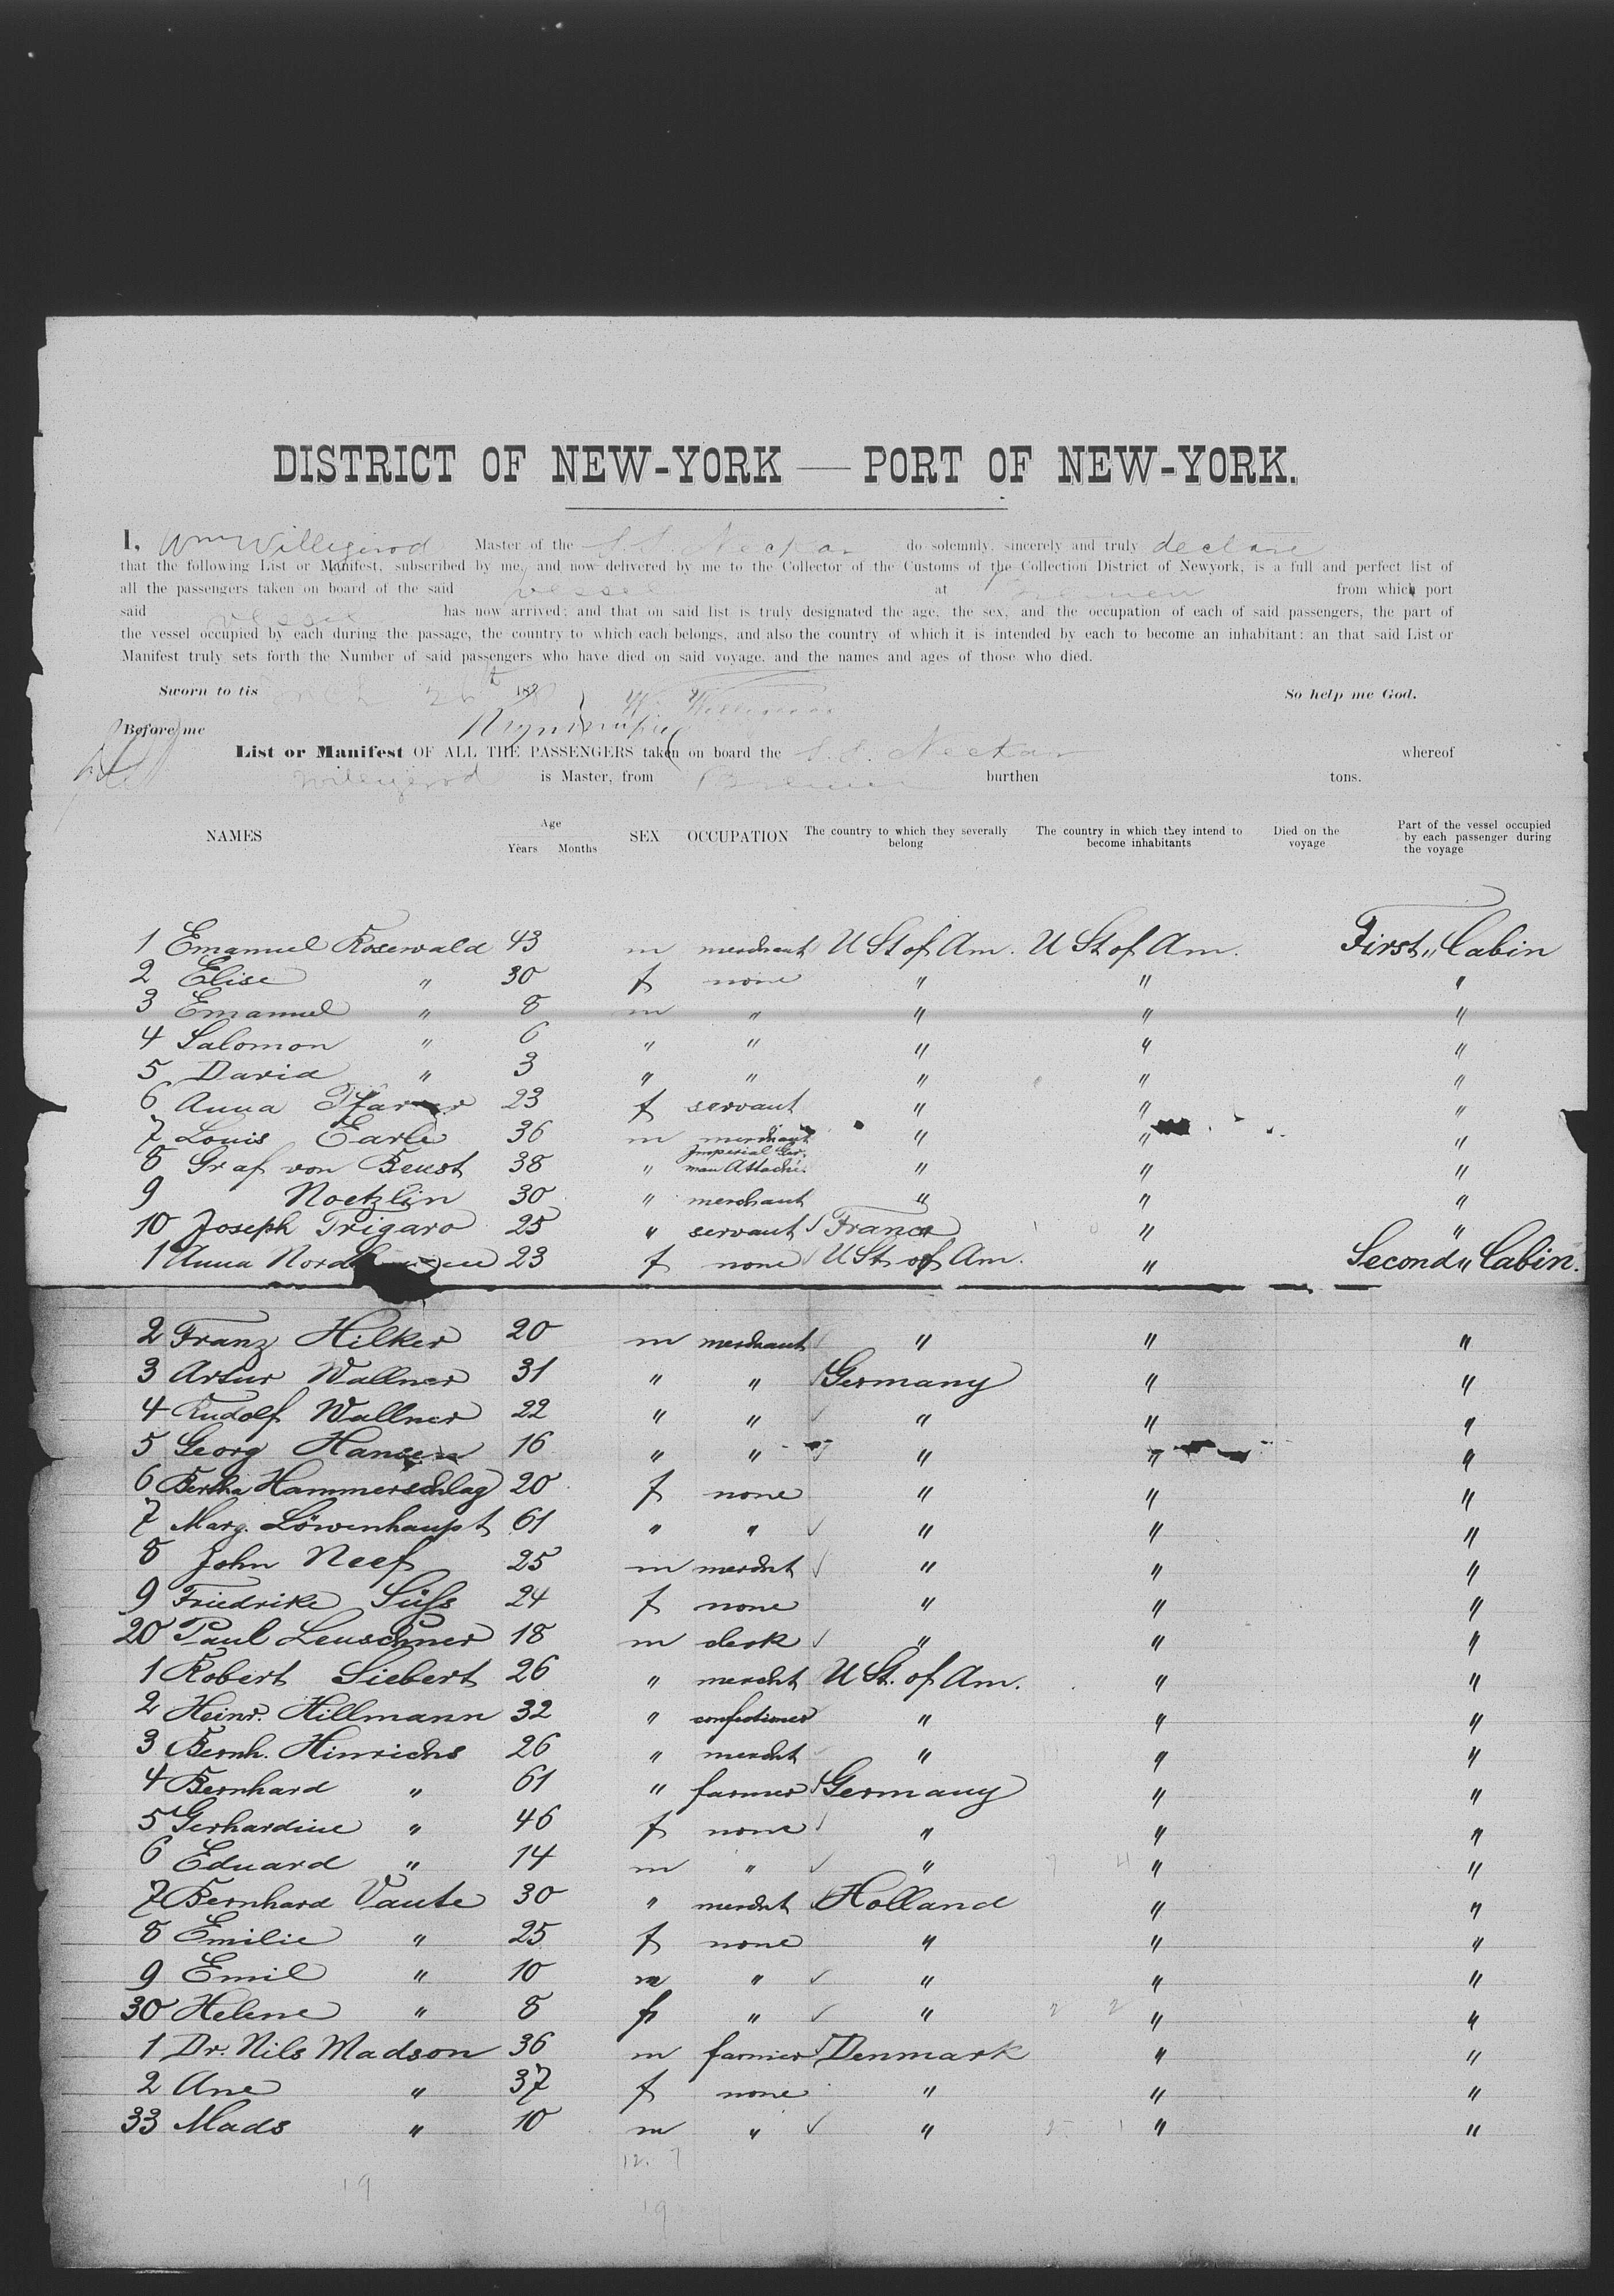 DISTRICT OF NEW-YORK — PORT OF NEW-YORK.
I, Wm Willigerod Master of the S.S. Neckar do solemnly, sincerely and truly declare
that the following List or Manifest, subscribed by me, and now delivered by me to the Collector of the Customs of the Collection District of Newyork, is a full and perfect list of
all the passengers taken on board of the said vessel at Bremen from which port
said vessel has now arrived; and that on said list is truly designated the age, the sex, and the occupation of each of said passengers, the part of
the vessel occupied by each during the passage, the country to which each belongs, and also the country of which it is intended by each to become an inhabitant: an that said List or
Manifest truly sets forth the Number of said passengers who have died on said voyage, and the names and ages of those who died.
Sworn to tis 26th 188 W. Willigerod So help me God.
Before me
List or Manifest OF ALL THE PASSENGERS taken on board the S.S. Neckar whereof
Willigerod is Master, from Bremen burthen tons.
NAMES Age Years Months SEX OCCUPATION The country to which they severally belong The country in which they intend to become inhabitants Died on the voyage Part of the vessel occupied by each passenger during the voyage
1 Emanuel Rosewald 43 m merchant U St of Am. U St of Am. First Cabin
2 Elise " 30 f none " " "
3 Emanuel " 8 m " " " "
4 Salomon " 6 " " " " "
5 David " 3 " " " " "
6 Anna 23 f servant " " "
7 Louis Earle 36 m merchant " " "
8 Graf von Beust 38 " Imperial German Attaché " " "
9 Noetzlin 30 " merchant " " "
10 Joseph Trigaro 25 " servant France " "
1 Anna 23 f none U St of Am. " Second Cabin.
2 Franz Hilker 20 m merchant " " "
3 Artur Wallner 31 " " Germany " "
4 Rudolf Wallner 22 " " " " "
5 Georg Hansen 16 " " " " "
6 Bertha Hammerschlag 20 f none " " "
7 Marg. Löwenhaupt 61 " " " " "
8 John Neef 25 m mercht " " "
9 Friedrike Süss 24 f none " " "
20 Paul Leuschner 18 m clerk " " "
1 Robert Siebert 26 " mercht U St. of Am. " "
2 Heinr. Hillmann 32 " confectioner " " "
3 Bernh. Hinrichs 26 " mercht " " "
4 Bernhard " 61 " farmer Germany " "
5 Gerhardine " 46 f none " " "
6 Eduard " 14 m " " " "
7 Bernhard Vaute 30 " mercht Holland " "
8 Emilie " 25 f none " " "
9 Emil " 10 m " " " "
30 Helene " 8 f " " " "
1 Dr. Nils Madson 36 m farmer Denmark " "
2 Ane " 37 f none " " "
33 Mads " 10 m " " " "
12. 7
19
19